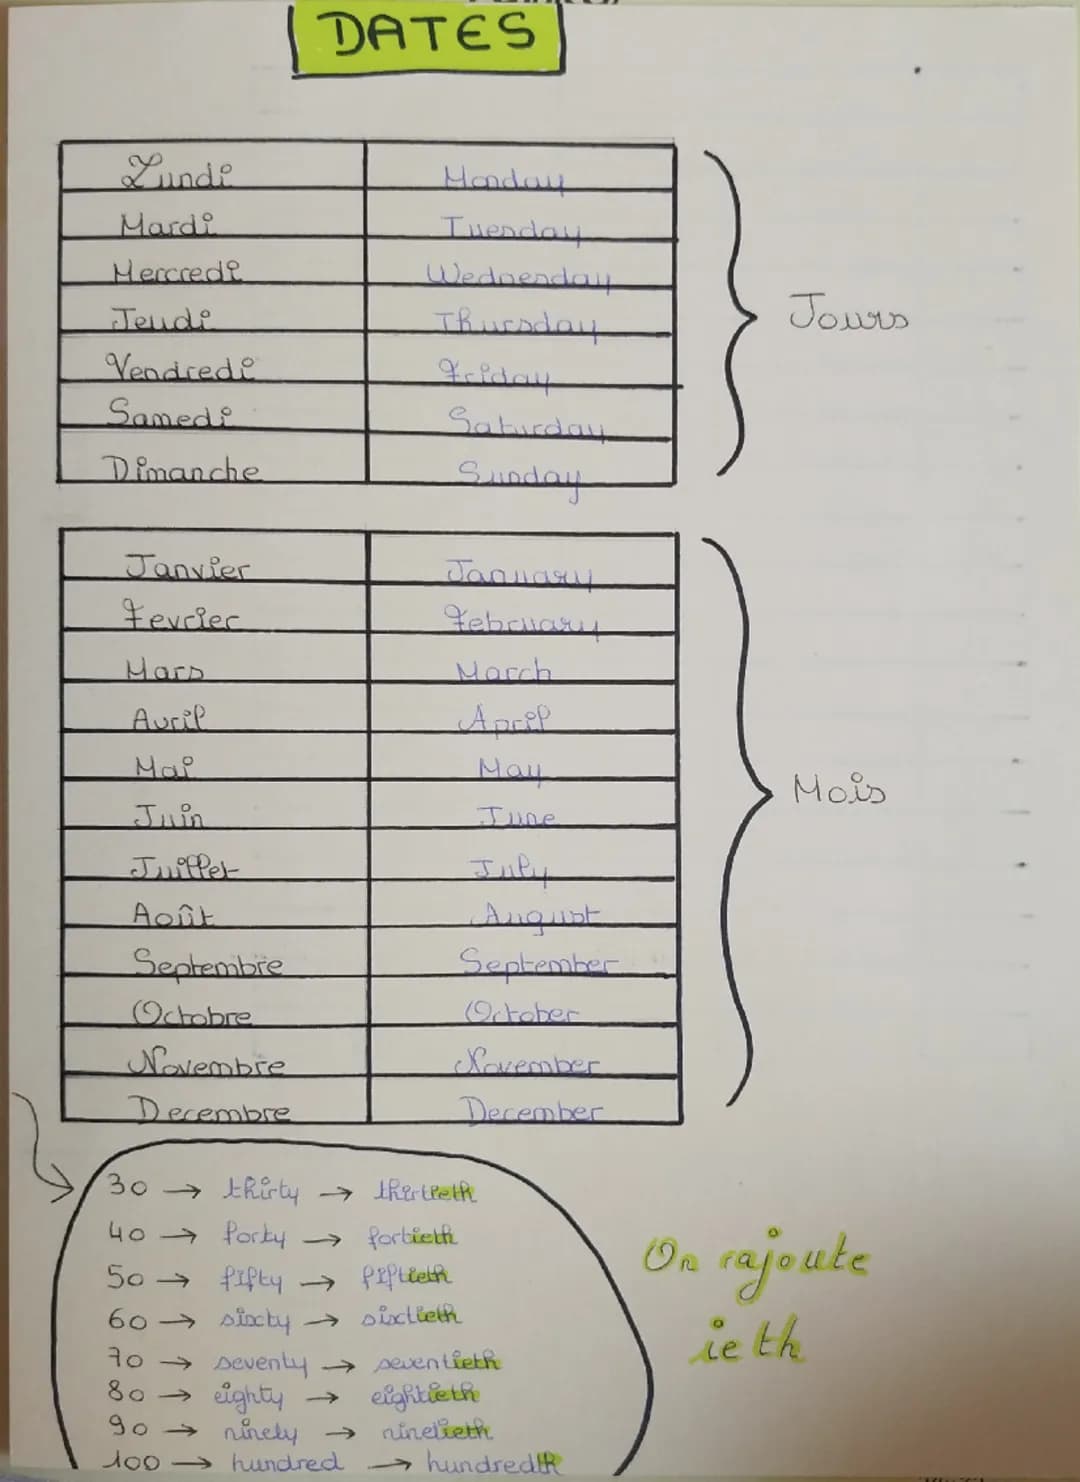 DATES
Lundi Monday
Mardi Tuesday
Mercredi Wednesday
Jeudi Thursday
Vendredi Friday
Samedi Saturday
Dimanche Sunday
Jours
Janvier January
Fevrier February
Mars March
Avril April
Mai May
Juin June
Juillet July
Août August
Septembre September
Octobre October
Novembre November
Decembre December
Mois
30 → thirty → thirtieth
40 → forty → fortieth
50 → fifty → fiftieth
60 → sixty → sixtieth
70 → seventy → seventieth
80 → eighty → eightieth
90 → ninety → ninetieth
100 → hundred → hundredth
On rajoute
ieth